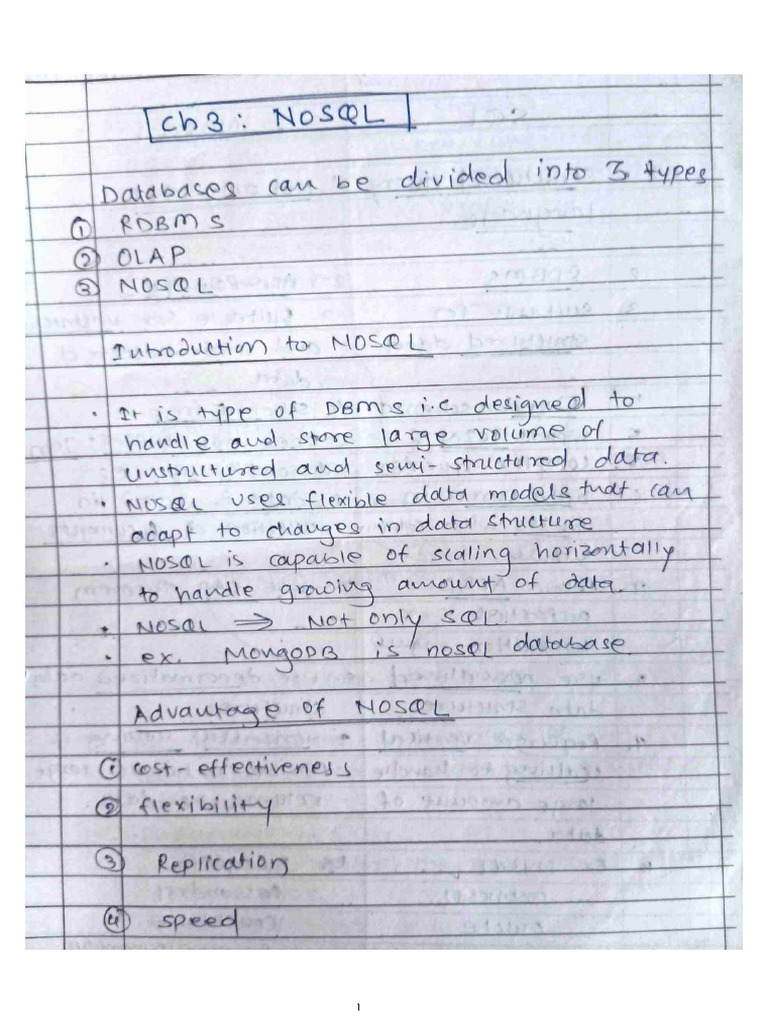 Ch 3 : NOSQL
Databases can be divided into 3 types
① RDBMS
② OLAP
③ NOSQL.
Introduction to NOSQL
• It is type of DBMS i.e designed to
handle and store large volume of
unstructured and semi-structured data.
• NOSQL uses flexible data models that can
adapt to changes in data structure
• NOSQL is capable of scaling horizontally
to handle growing amount of data.
• NOSQL ⇒ Not only SQL
• ex. MongoDB is nosql database.
Advantage of NOSQL
① cost-effectiveness
② flexibility
③ Replication
④ speed
1